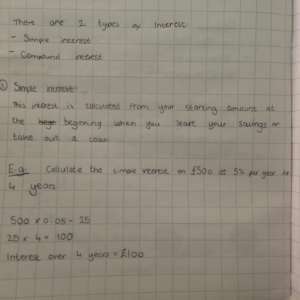 There are 2 types of Interest
- Simple interest
- Compound interest
① Simple interest:
This interest is calculated from your starting amount at
the beginning when you start your savings or
take out a loan
E.g. Calculate the simple interest on £500 at 5% per year for
4 years
500 x 0.05 = 25
25 x 4 = 100
Interest over 4 years = £100